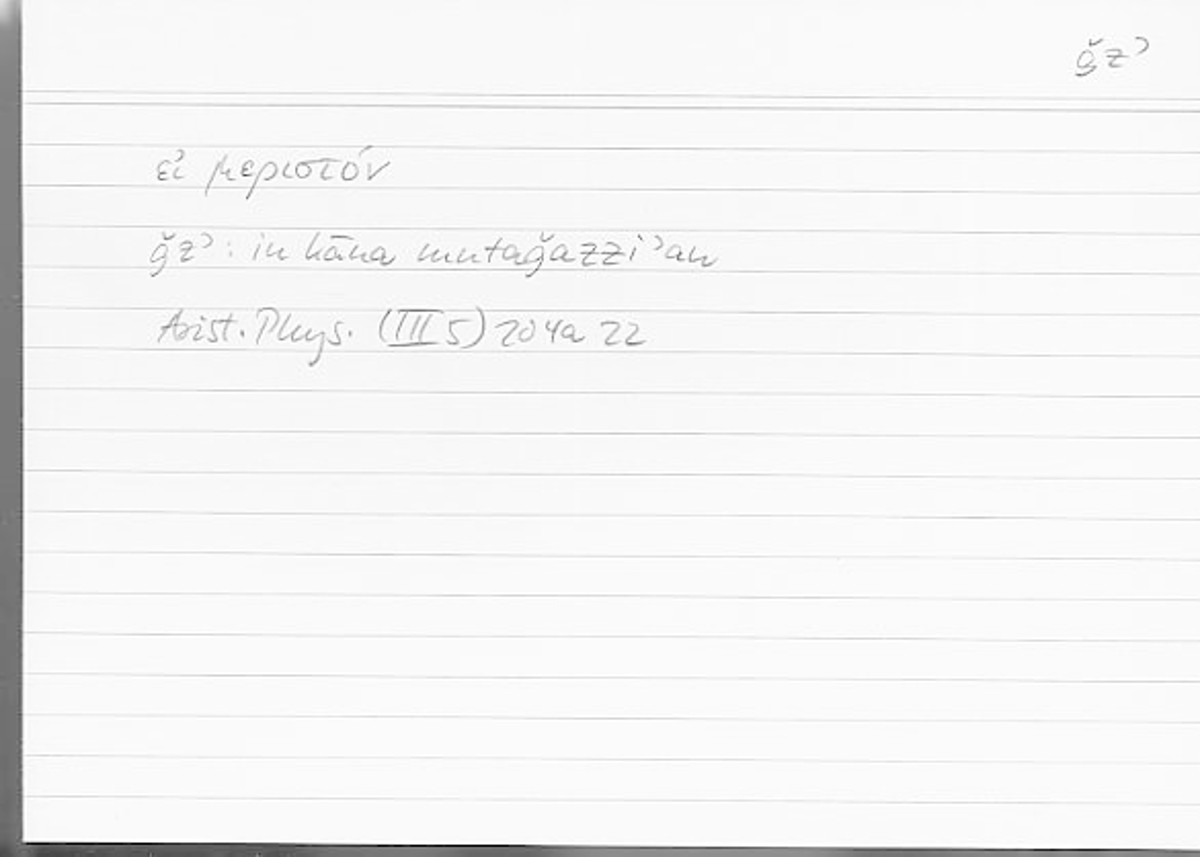 ǧzʾ
εἰ μεριστόν
ǧzʾ: in kāna mutaǧazziʾan
Arist. Phys. (III 5) 204a 22